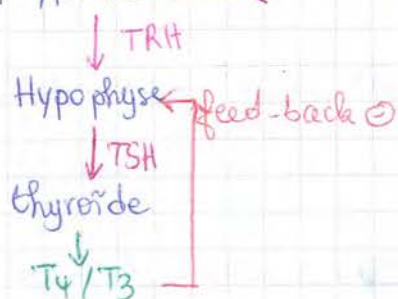 TRH
Hypophyse feed-back ⊖
TSH
thyroïde
T4/T3